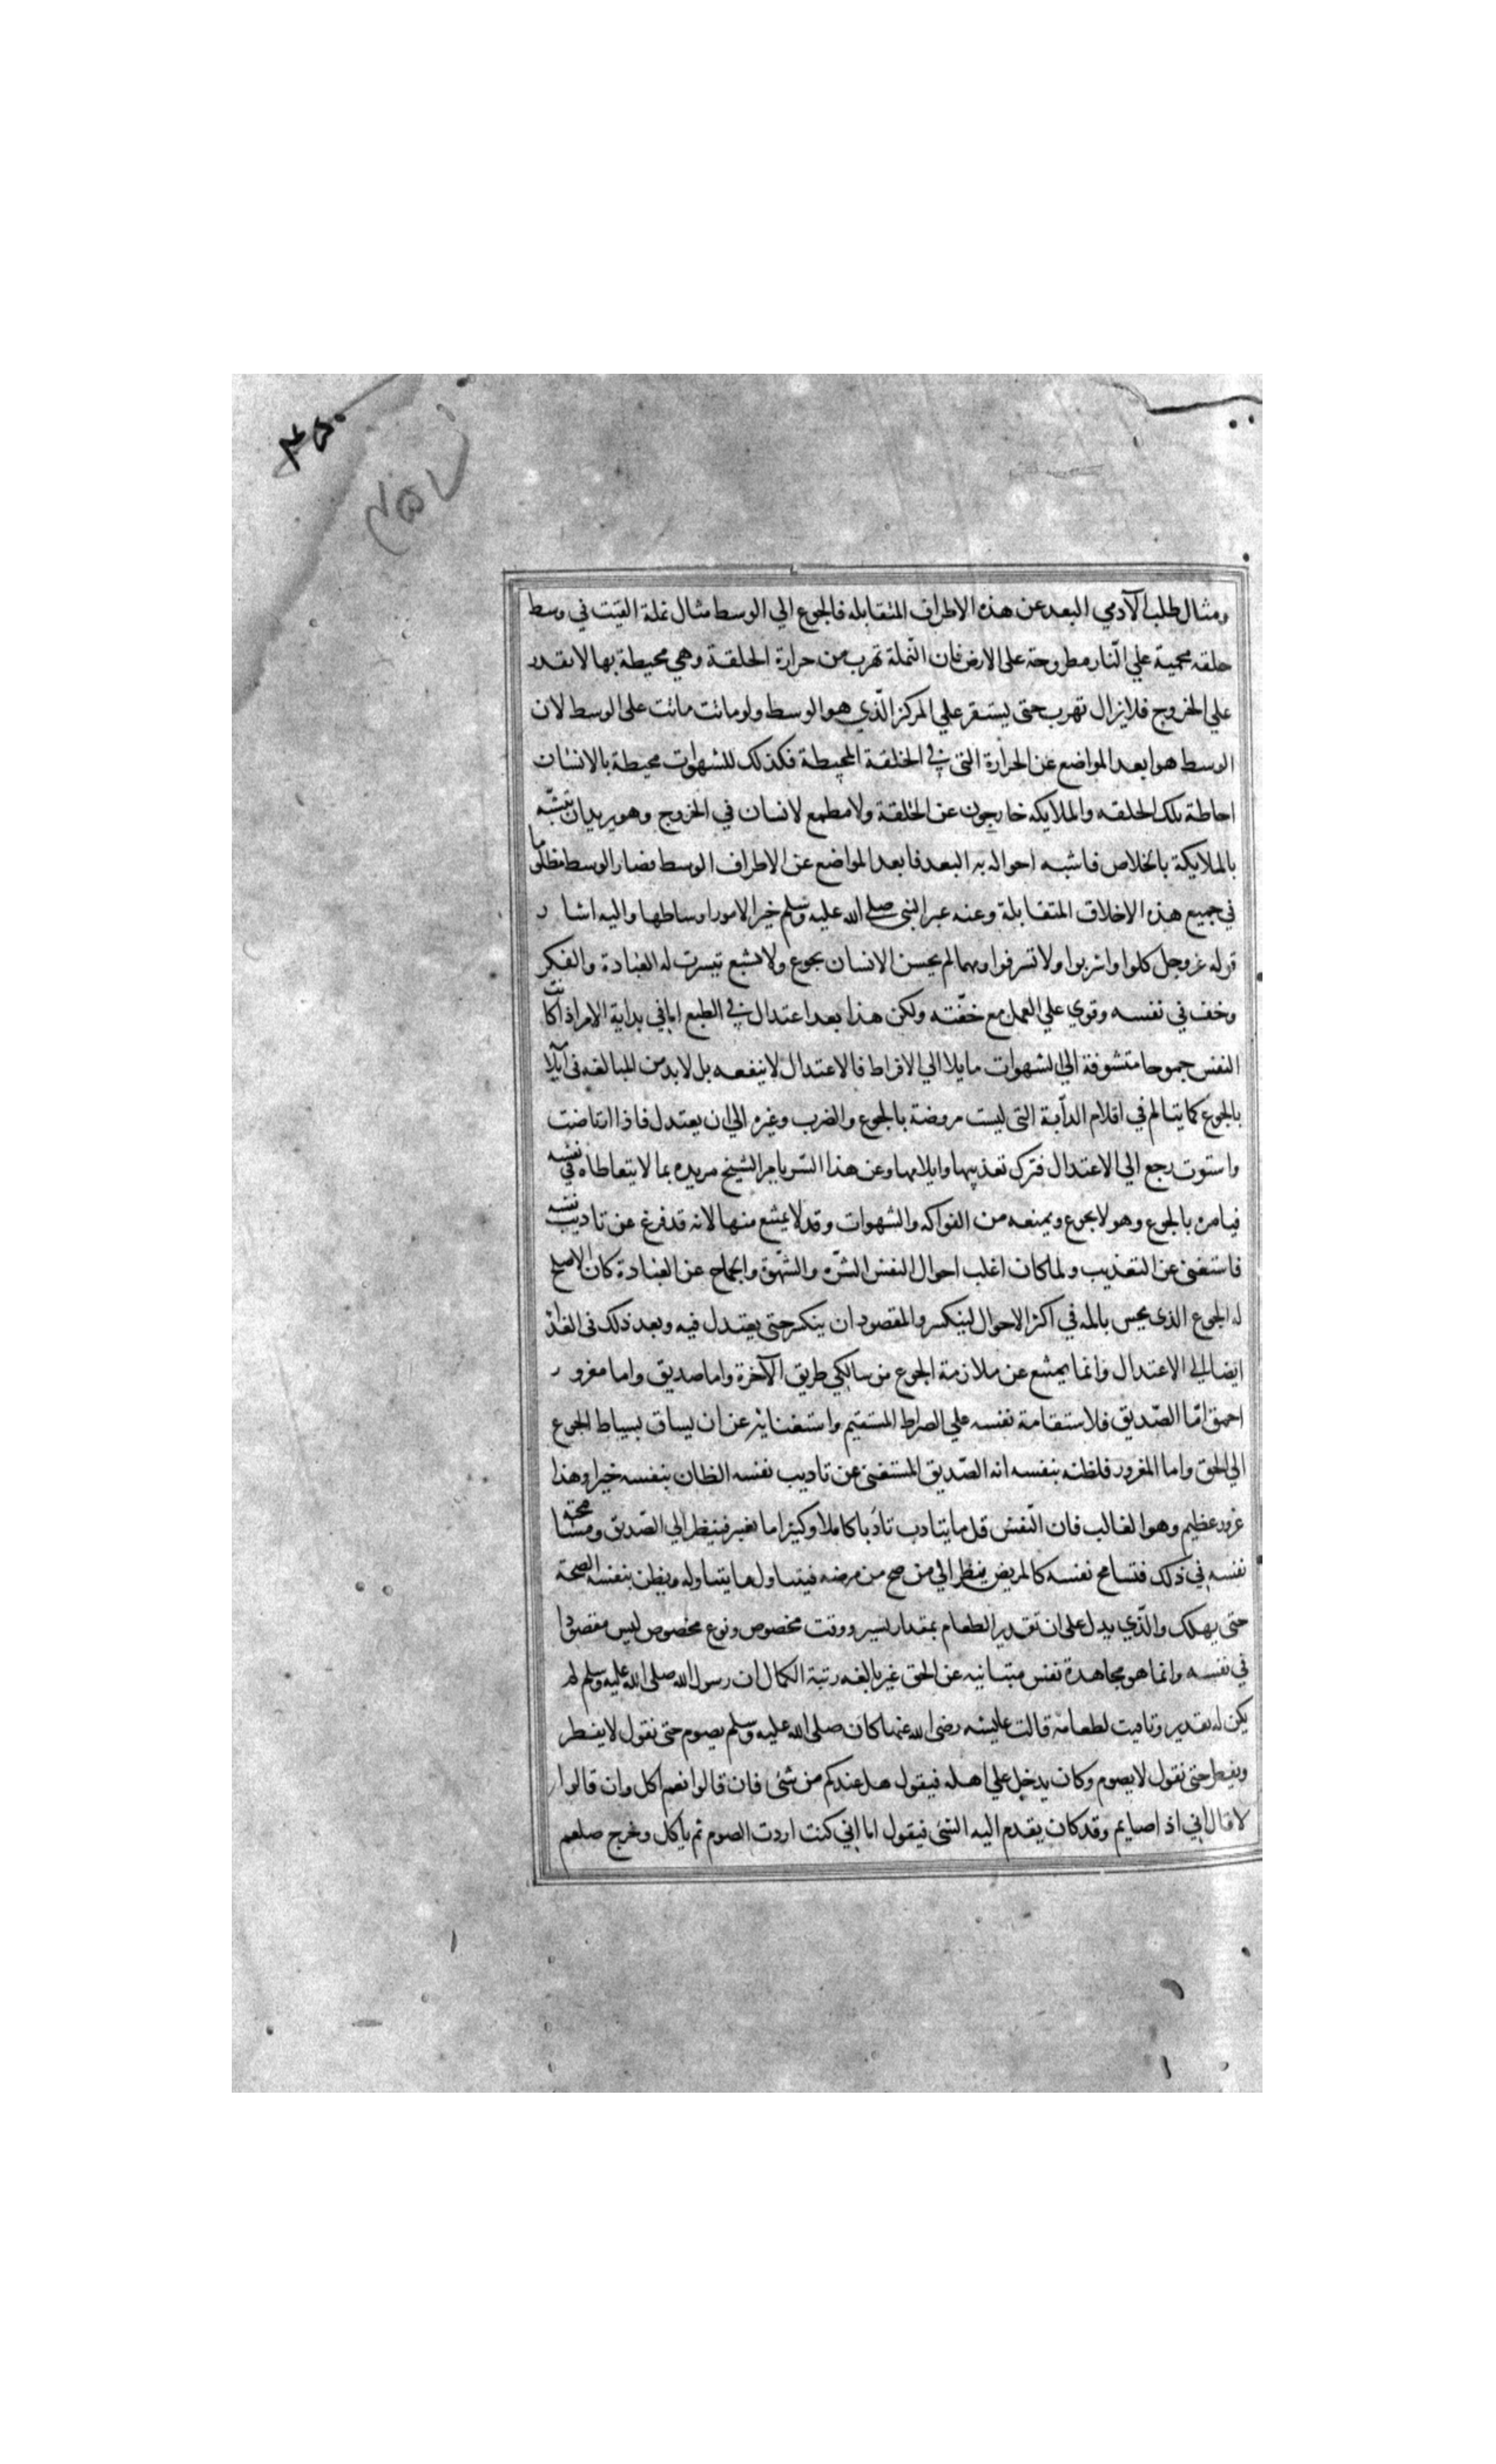 ومثال طلب الآدمي البعد عن هذه الاطراف المتقابله فالجوع الي الوسط مثال نملة القيت في وسط
حلقه محمية علي النار مطروحة على الارض فان النملة تهرب من حرارة الحلقة وهي محيطة بها لا تقدر
علي الخروج فلا يزال تهرب حتى يستقر علي المركز الذي هو الوسط ولو ماتت ماتت على الوسط لان
الوسط هو ابعد المواضع عن الحرارة التي في الحلقة المحيطة فكذلك للشهوات محيطة بالانسان
احاطة تلك الحلقه والملايكه خارجون عن الحلقة ولا مطمع لانسان في الخروج وهو يريد ان يتشبّه
بالملايكة بالخلاص فاشبه احواله بهم البعد فابعد المواضع عن الاطراف الوسط فصار الوسط مطلوبا
في جميع هذه الاخلاق المتقابلة وعنه عبر النبي صلي الله عليه وسلم خير الامور اوساطها واليه اشار
قوله عز وجل كلوا واشربوا ولا تسرفوا ومهما لم يحس الانسان بجوع ولا شبع تيسرت له العبادة والفكر
وخف في نفسه وقوي علي العمل مع خفّته ولكن هذا بعد اعتدال في الطبع اما في بداية الامر اذا كانت
النفس جموحا متشوفة الي الشهوات مايلا الي الافراط فالاعتدال لا ينفعه بل لا بد من المبالغه في ايلا
بالجوع كما يتالم في اقلام الدآبة التي ليست مروضة بالجوع والضرب وغيره الي ان يعتدل فاذا ارتاضت
واستوت رجع الي الاعتدال فترك تعذيبها وايلامها وعن هذا السّر يامر الشيخ مريده بما لا يتعاطاه في نفسه
فيامره بالجوع وهو لا يجوع ويمنعه من الفواكه والشهوات وقد لا يمتنع منها لانه قد فرغ عن تاديب نفسه
فاستغنى عن التعذيب ولما كان اغلب احوال النفس الشّره والشهوة والجماح عن العبادة كان الاصلح
له الجوع الذى يحس بالمه في اكثر الاحوال لينكسر والمقصود ان ينكسر حتى يعتدل فيه وبعد ذلك في الغذا
ايضا الي الاعتدال وانما يمتنع عن ملازمة الجوع من سالكي طريق الآخرة واما صديق واما مغرور
احمق امّا الصّديق فلاستقامة نفسه علي الصراط المستقيم واستغنائه عن ان يساق بسياط الجوع
الي الحق واما المغرور فلظنه بنفسه انه الصّديق المستغنى عن تاديب نفسه الظان بنفسه خيرا وهذا
غرور عظيم وهو الغالب فان النّفس قل ما يتادب تادبا كاملا وكثيرا ما تغتر فينظر الي الصّديق ومسامحته
نفسه في ذلك فتسامح نفسه كالمريض ينظر الي من صح من مرضه فيتناول ما يتناوله ويظن بنفسه الصحة
حتى يهلك والّذي يدل على ان تقدير الطعام بمقدار يسير ووقت مخصوص ونوع مخصوص ليس مقصودا
في نفسه وانما هو مجاهدة نفس عن الحق غير بالغه رتبة الكمال ان رسول الله صلى الله عليه وسلم لم
يكن له تقدير وتاقيت لطعامه قالت عايشه رضى الله عنها كان صلى الله عليه وسلم يصوم حتى نقول لا يفطر
ويفطر حتى نقول لا يصوم وكان يدخل علي اهله فيقول هل عندكم من شئ فان قالوا نعم اكل وان قالوا
لا قال اني اذا صايم وقد كان يقدم اليه الشئ فيقول اما اني كنت اردت الصوم ثم ياكل وخرج صلعم